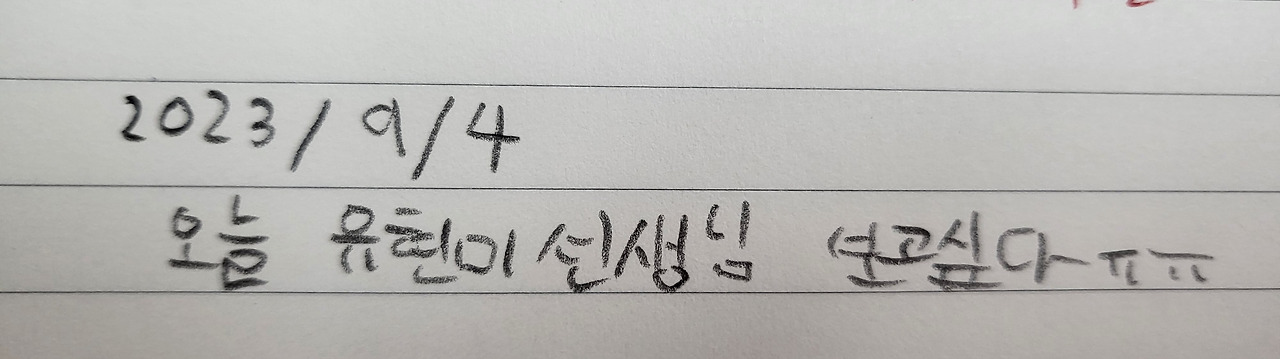 2023/9/4
오늘 유현미 선생님 보고싶다 ㅠㅠ